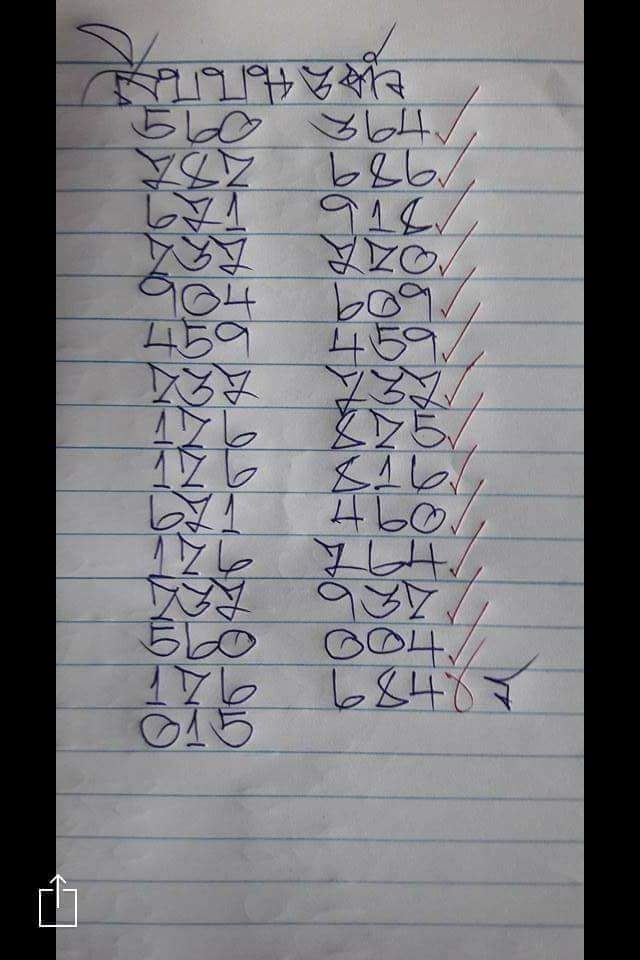 วิ่งบน 3 ตัว
560 364
787 686
671 918
737 770
904 609
459 459
737 737
176 875
176 816
671 460
176 764
737 937
560 004
176 684
015